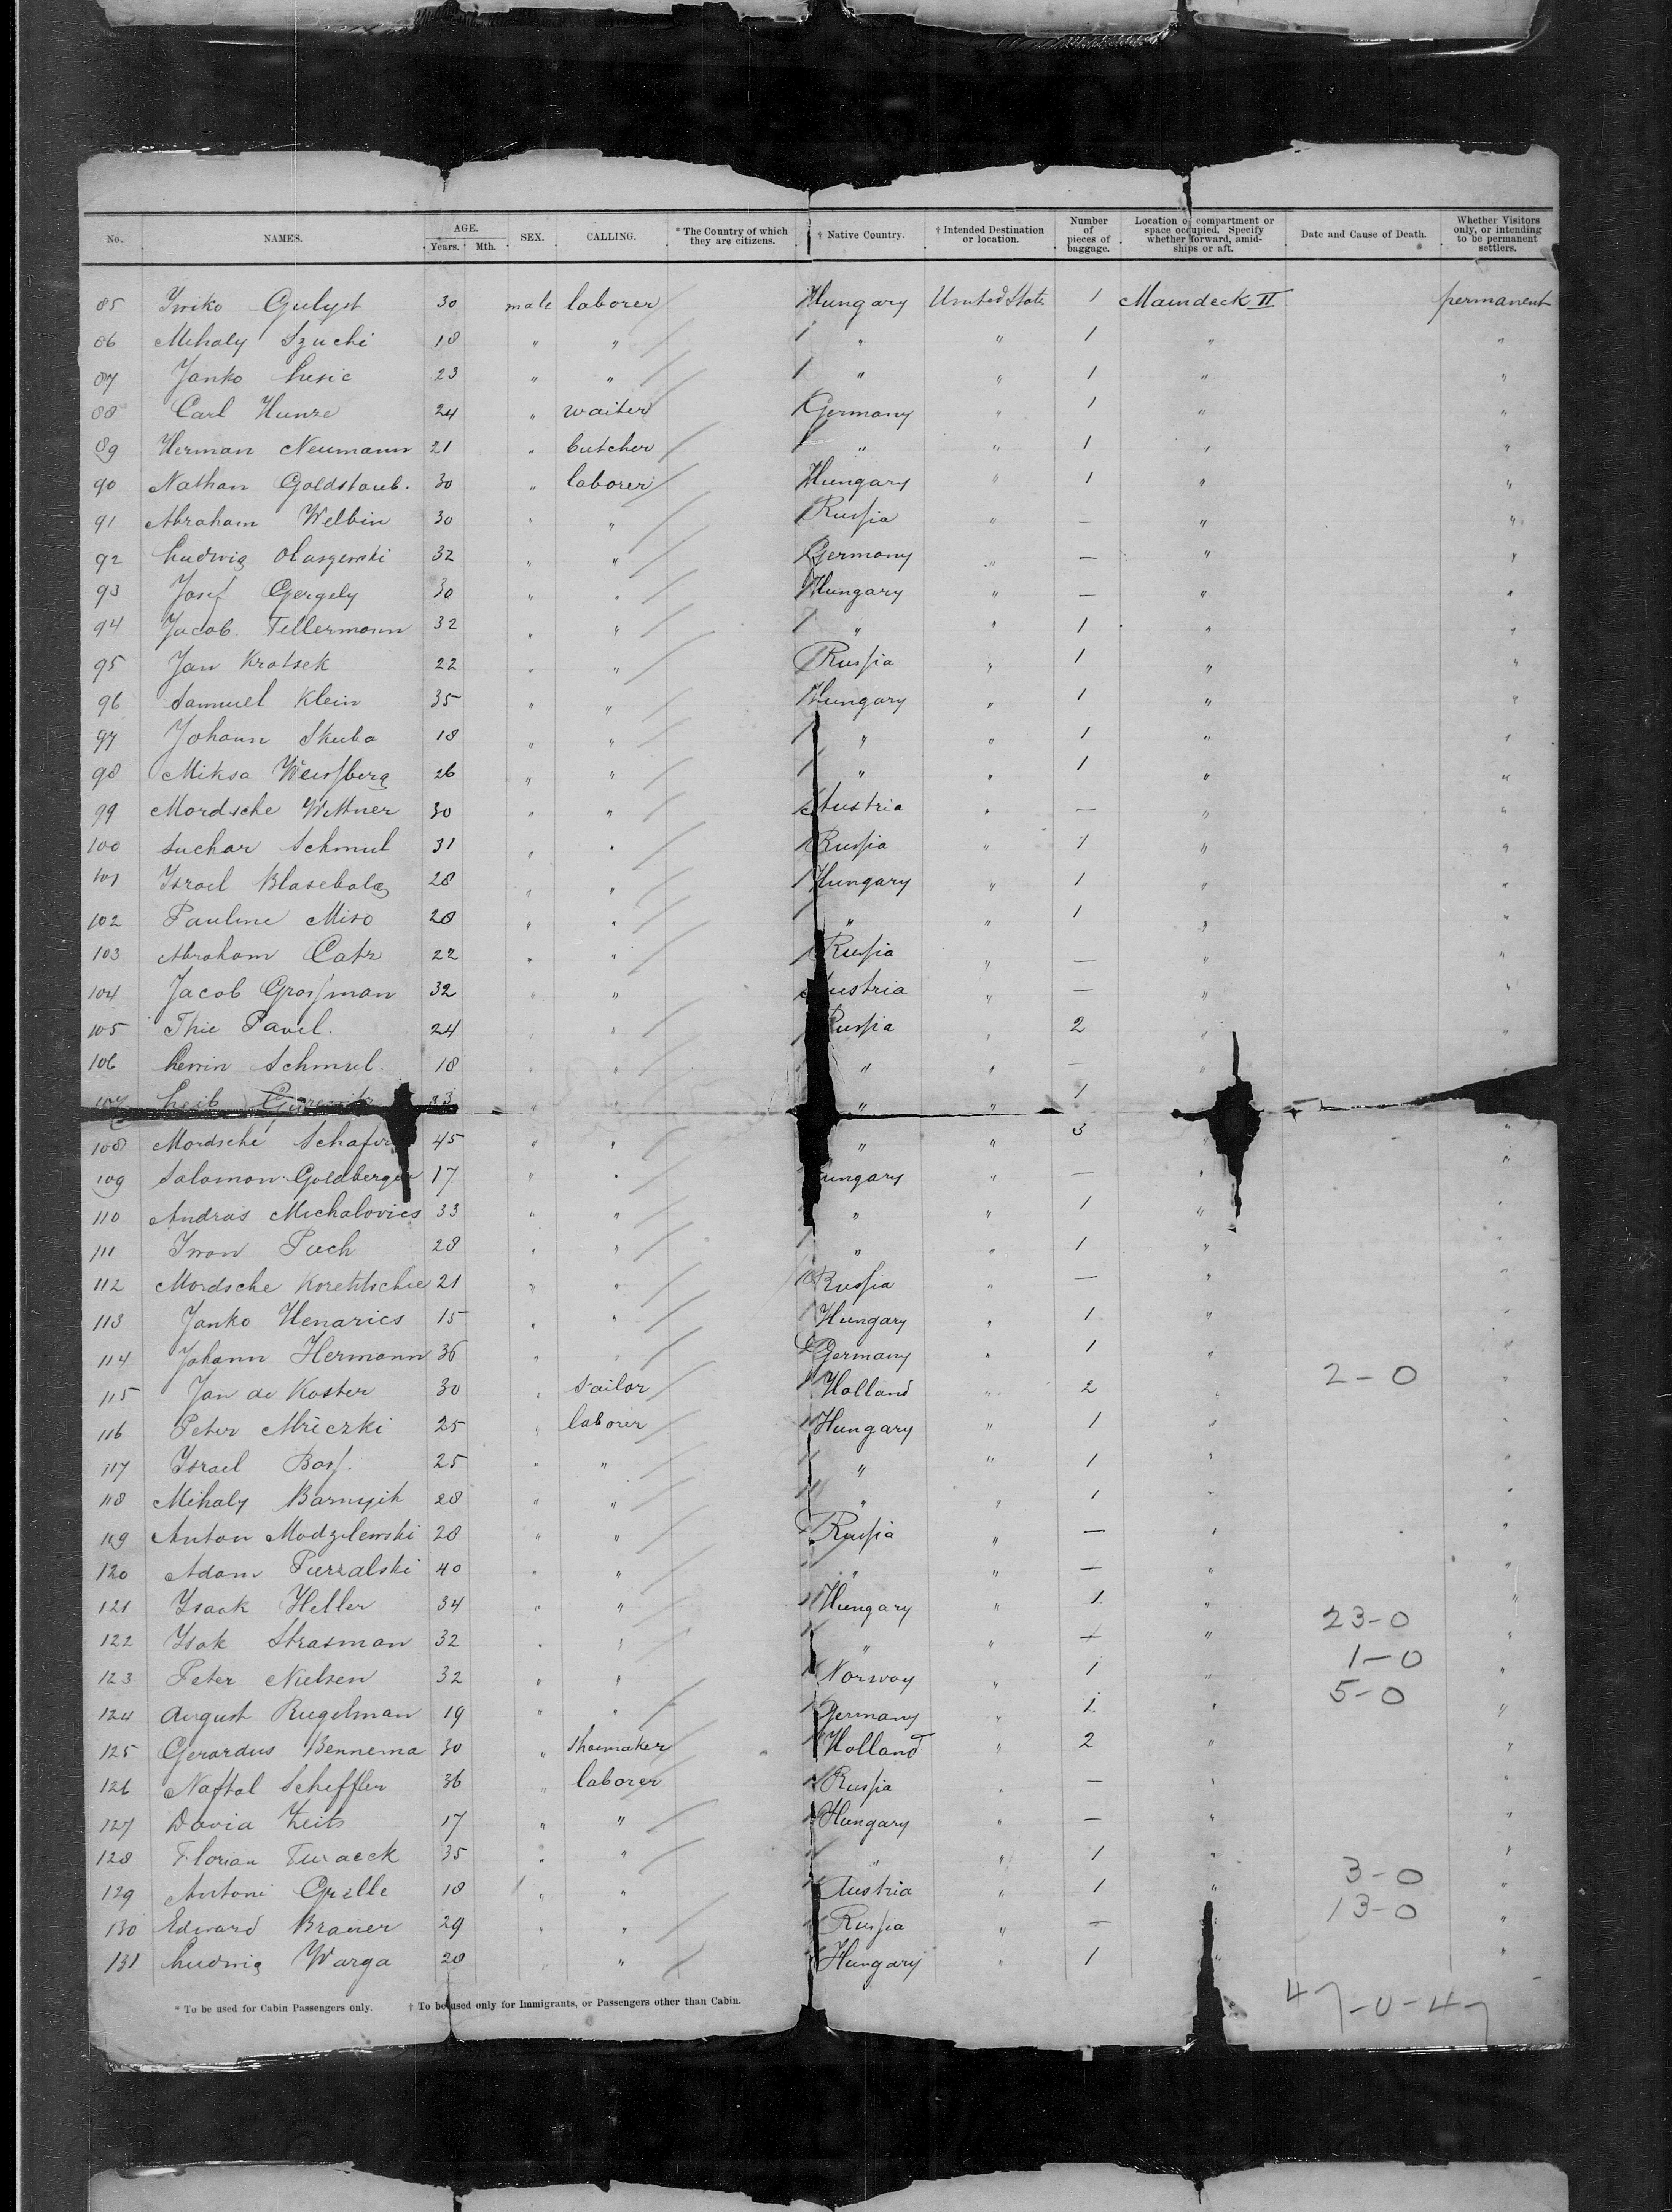 No. NAMES. AGE. Years. Mth. SEX. CALLING. * The Country of which they are citizens. † Native Country. † Intended Destination or location. Number of pieces of baggage. Location of compartment or space occupied. Specify whether forward, amidships or aft. Date and Cause of Death. Whether Visitors only, or intending to be permanent settlers.
85 Iwiko Gulyst 30 male laborer Hungary United State 1 Maindeck II permanent
86 Mihaly Szuchi 18 " " " " 1 " "
87 Janko Lusic 23 " " " " 1 " "
88 Carl Hunze 24 " waiter Germany " 1 " "
89 Herman Neumann 21 " butcher " " 1 " "
90 Nathan Goldstaub. 30 " laborer Hungary " 1 " "
91 Abraham Welbin 30 " " Russia " — " "
92 Ludwig Olaszewski 32 " " Germany " — " "
93 Josef Gergely 30 " " Hungary " — " "
94 Jacob Fellermann 32 " " " " 1 " "
95 Jan Kratsek 22 " " Russia " 1 " "
96 Samuel Klein 35 " " Hungary " 1 " "
97 Johann Skuba 18 " " " " 1 " "
98 Miksa Weissberg 26 " " " " 1 " "
99 Mordsche Wittner 30 " " Austria " — " "
100 Suchar Schmul 31 " " Russia " 1 " "
101 Israel Blasebalg 28 " " Hungary " 1 " "
102 Pauline Miso 28 " " " " 1 " "
103 Abraham Catz 22 " " Russia " — " "
104 Jacob Grossman 32 " " Austria " — " "
105 Thie Pavel. 24 " " Russia " 2 " "
106 Lewin Schmul. 18 " " " " — " "
107 Leib 33 " " " " 1
108 Mordsche Schafir 45 " " " " 3 " "
109 Salomon Goldberger 17 " " Hungary " — " "
110 Andras Michalovics 33 " " " " 1 " "
111 Iwan Puch 28 " " " " 1 " "
112 Mordsche Koretitschie 21 " " Russia " — " "
113 Janko Henarics 15 " " Hungary " 1 " "
114 Johann Hermann 36 " " Germany " 1 " "
115 Jan de Koster 30 " sailor Holland " 2 " 2-0 "
116 Peter Mriczki 25 " laborer Hungary " 1 " "
117 Israel Boss. 25 " " " " 1 " "
118 Mihaly Barnyik 28 " " " " 1 " "
119 Anton Modzilewski 28 " " Russia " — " "
120 Adam Pierzalski 40 " " " " — " "
121 Isaak Heller 34 " " Hungary " 1 " "
122 Isak Strasman 32 " " " " — " 23-0 "
123 Peter Nielsen 32 " " Norway " 1 " 1-0 "
124 August Rugelman 19 " " Germany " 1 " 5-0 "
125 Gerardus Bennema 30 " shoemaker Holland " 2 " "
126 Naftal Scheffler 36 " laborer Russia " — " "
127 David Zeits 17 " " Hungary " — " "
128 Florian Turaeck 35 " " " " 1 " "
129 Antoni Grelle 18 " " Austria " 1 " 3-0 "
130 Edward Brauer 29 " " Russia " — " 13-0 "
131 Ludwig Warga 28 " " Hungary " 1 " "
* To be used for Cabin Passengers only. † To be used only for Immigrants, or Passengers other than Cabin.
47-0-47